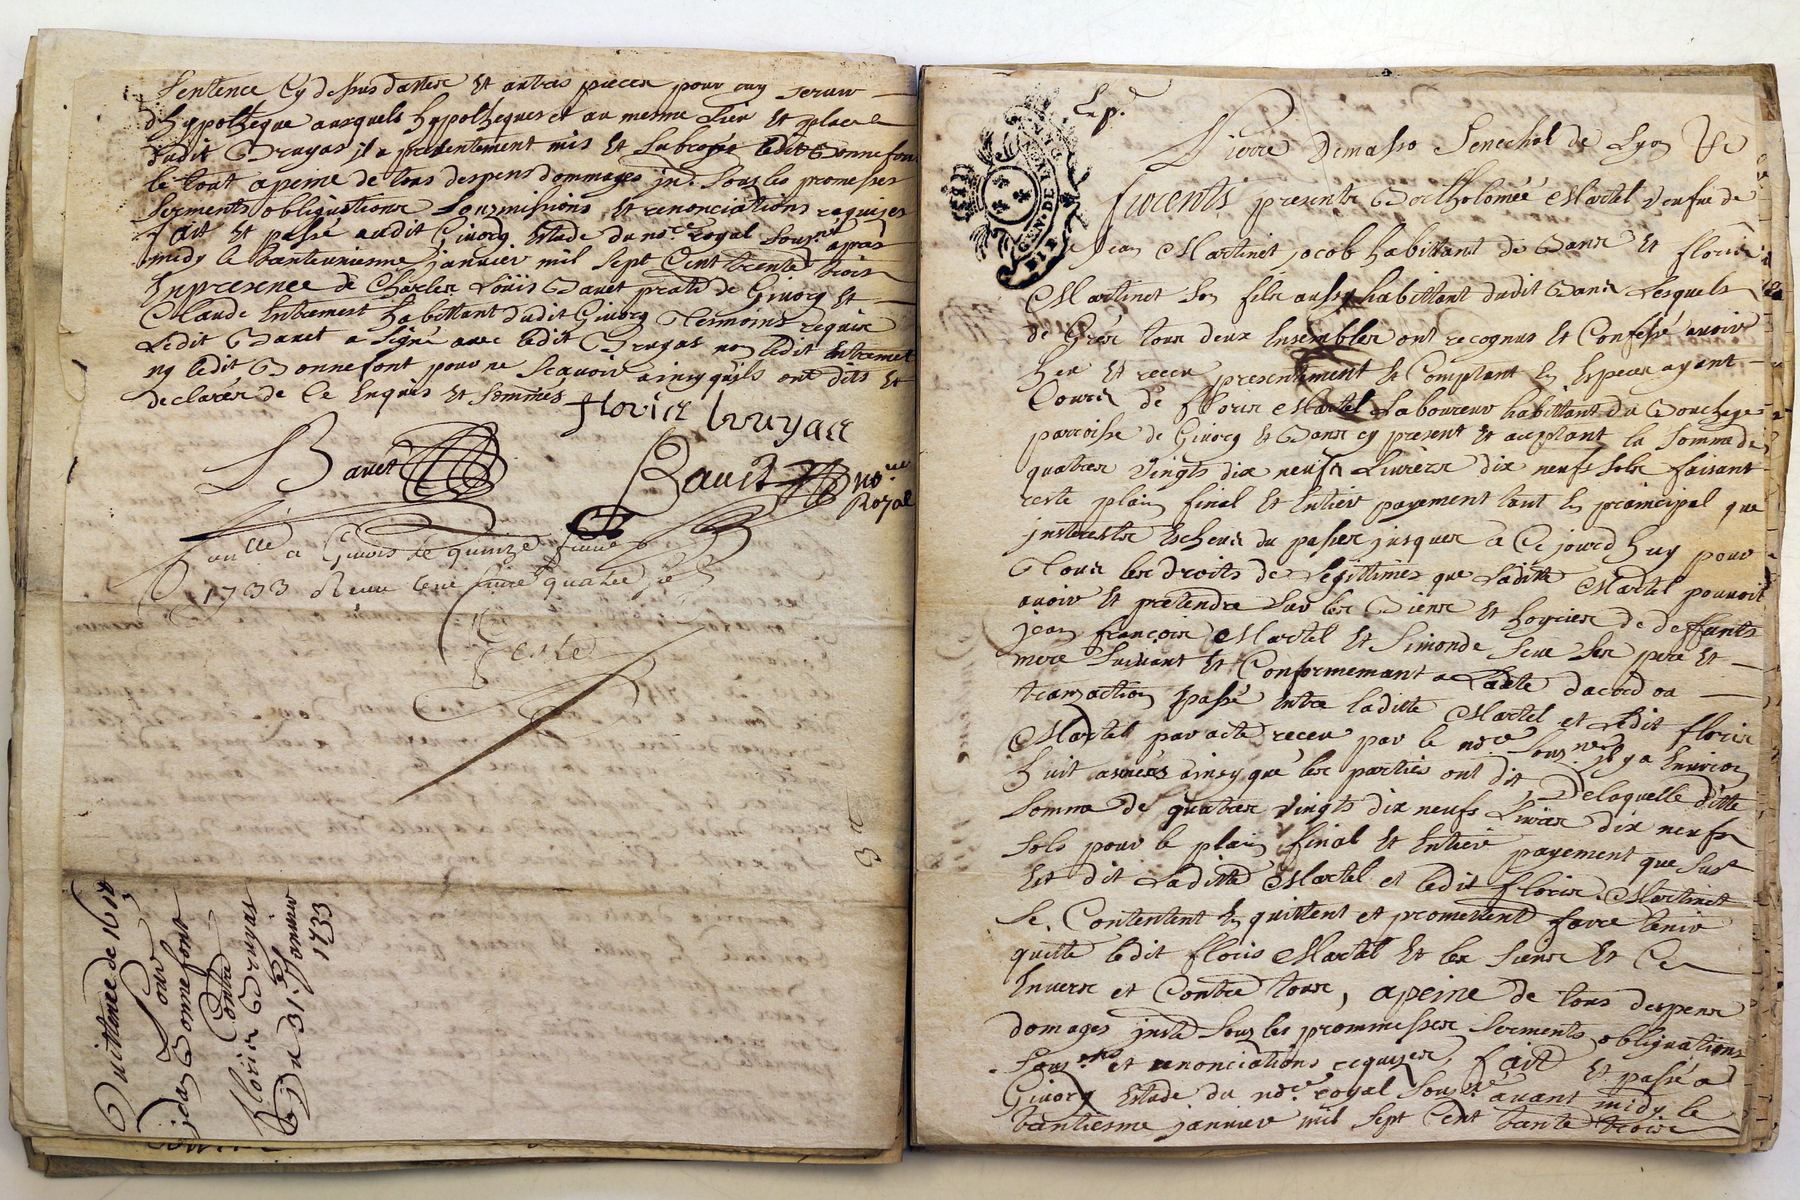 Sentence Cy dessus dattée Et autres pieces pour luy servir
dhypotheque ausquels hypotheques et au mesme Lieu Et place
dudit Bruyas il a presentement mis Et Subrogé ledit Bonnefon
le tout a peine de tous despens dommages in. Sous les promesses
Serments obligations Soumissions Et renonciations requises
fait Et passé audit Givorq Estude du no.re royal Sous.né apres
midy le trente uniesme janvier mil Sept Cent trente trois
En presence de Charles Loüis Bavet de Givorq Et
Claude Entremest habittant dudit Givorq Tesmoins requis
Ledit Bavet a Signé avec ledit Bruyas non ledit Entremet
ny ledit Bonnefont pour ne Scavoir ainsy quils ont dits Et
declarés de Ce Enquis Et Sommés
floris bruyas
Bavet
Bavet no.re
Royal
a Givors le quinze
1733 Receu
Quittence de 161
Pour
Bonnefont
Contre
floris Bruyas
Du 31.e Janvier
1733
Exp.
GEN. DE LYON
Pierre Demasso Senechal de Lyon
furents presents Bartholomée Martel Veufve de
Jean Martinet jacob habittant de Bans Et floris
Martinet Son fils aussy habittant dudit Bans Lesquels
de Gres tous deux Ensembles ont recognus Et Confessé avoir
heu Et receu presentement Et Comptant En Especes ayant
Cours de floris Martel Laboureur habittant du Bouchage
parroisse de Givorq Et Bans cy present Et acceptant la Somme de
quatres Vingts dix neufs Livres dix neufs Sols faisant
reste plain final Et Entier payement tant En principal que
interests Escheus du passé jusques a Ce jourd huy pour
Tous les droits de Legittimes que Laditte Martel pouvoit
avoir Et pretendre Sur les Biens Et hoyries de deffunts
jean françois Martel Et Simonde Seve Ses pere Et
mere Suivant Et Conformemant a Lacte dacord ou
transaction passé Entre laditte Martel et Ledit floris
Martel par acte receu par le no.re Sous.né il y a Environ
huit années ainsy que les parties ont dit Delaquelle ditte
Somme de quatres Vingts dix neufs Livres dix neufs
Sols pour le plain final Et Entier payement que Sus
Est dit Laditte Martel et ledit floris Martinet
Se Contentent En quittent et promettent faire tenir
quitte ledit floris Martel Et les Siens Et Ce
Envers et Contre tous, a peine de tous despens
domages inst. Sous les prommesses Serments obligations
Sous.ons et renonciations requises fait Et passé a
Givorq Estude du no.re royal Sous.né avant midy le
trantiesme janvier mil Sept Cent trante trois